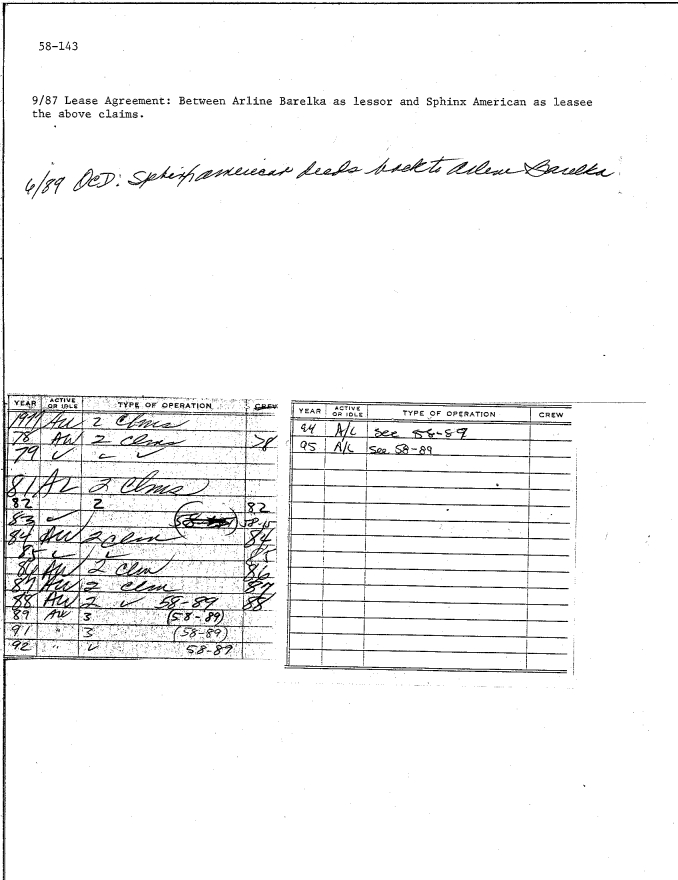 58-143
9/87 Lease Agreement: Between Arline Barelka as lessor and Sphinx American as leasee
the above claims.
6/89 QCD: Sphinx american deeds back to Arlene Barelka
YEAR ACTIVE OR IDLE TYPE OF OPERATION CREW
1977 AW 2 Clms
78 AW 2 Clms 78
79 ✓ ✓ ✓
81 AL 2 Clms
82 2 82
83 ✓
84 AW 2 clm 84
85 ✓ ✓ 85
86 AW 2 Clm 86
87 AW 2 clm 87
88 AW 2 ✓ 58-89 88
89 AW 3 (58-89)
91 " 3 (58-89)
92 " ✓ 58-89
YEAR ACTIVE OR IDLE TYPE OF OPERATION CREW
94 A/L see 58-89
95 A/L see 58-89